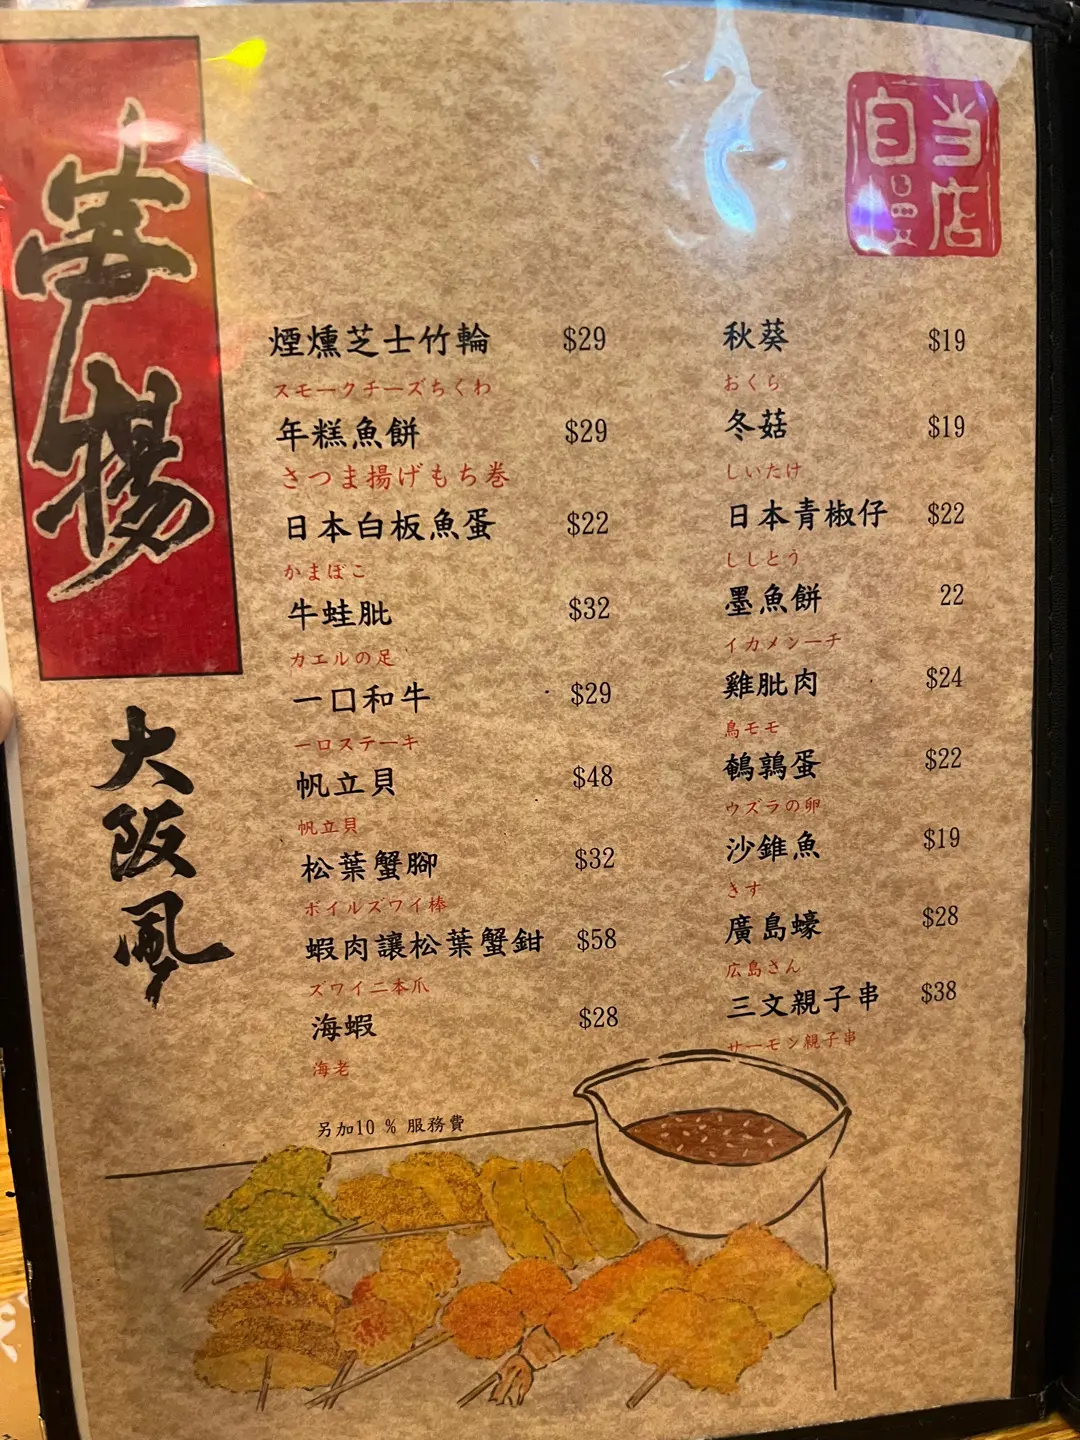 串揚
大阪風
当店
自慢
煙燻芝士竹輪 $29
スモークチーズちくわ
年糕魚餅 $29
さつま揚げもち巻
日本白板魚蛋 $22
かまぼこ
牛蛙肶 $32
カエルの足
一口和牛 $29
一口ステーキ
帆立貝 $48
帆立貝
松葉蟹腳 $32
ボイルズワイ棒
蝦肉讓松葉蟹鉗 $58
ズワイ二本爪
海蝦 $28
海老
秋葵 $19
おくら
冬菇 $19
しいたけ
日本青椒仔 $22
ししとう
墨魚餅 22
イカメンーチ
雞肶肉 $24
鳥モモ
鵪鶉蛋 $22
ウズラの卵
沙錐魚 $19
きす
廣島蠔 $28
広島さん
三文親子串 $38
サーモン親子串
另加10 % 服務費